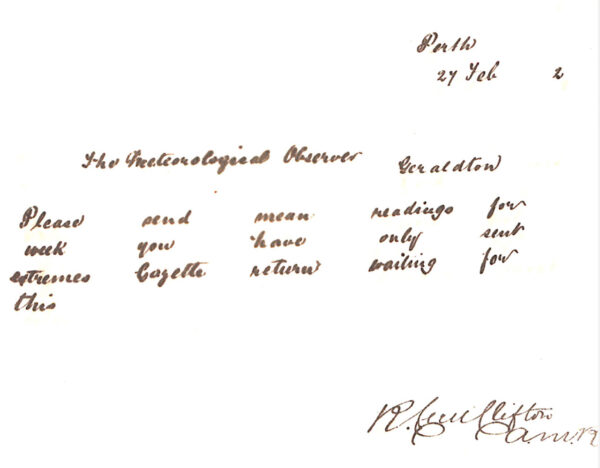 Perth
27 Feb 2
The Meteorological Observer Geraldton
Please send mean readings for
week you have only sent
extremes Gazette return waiting for
this
R. Clifton